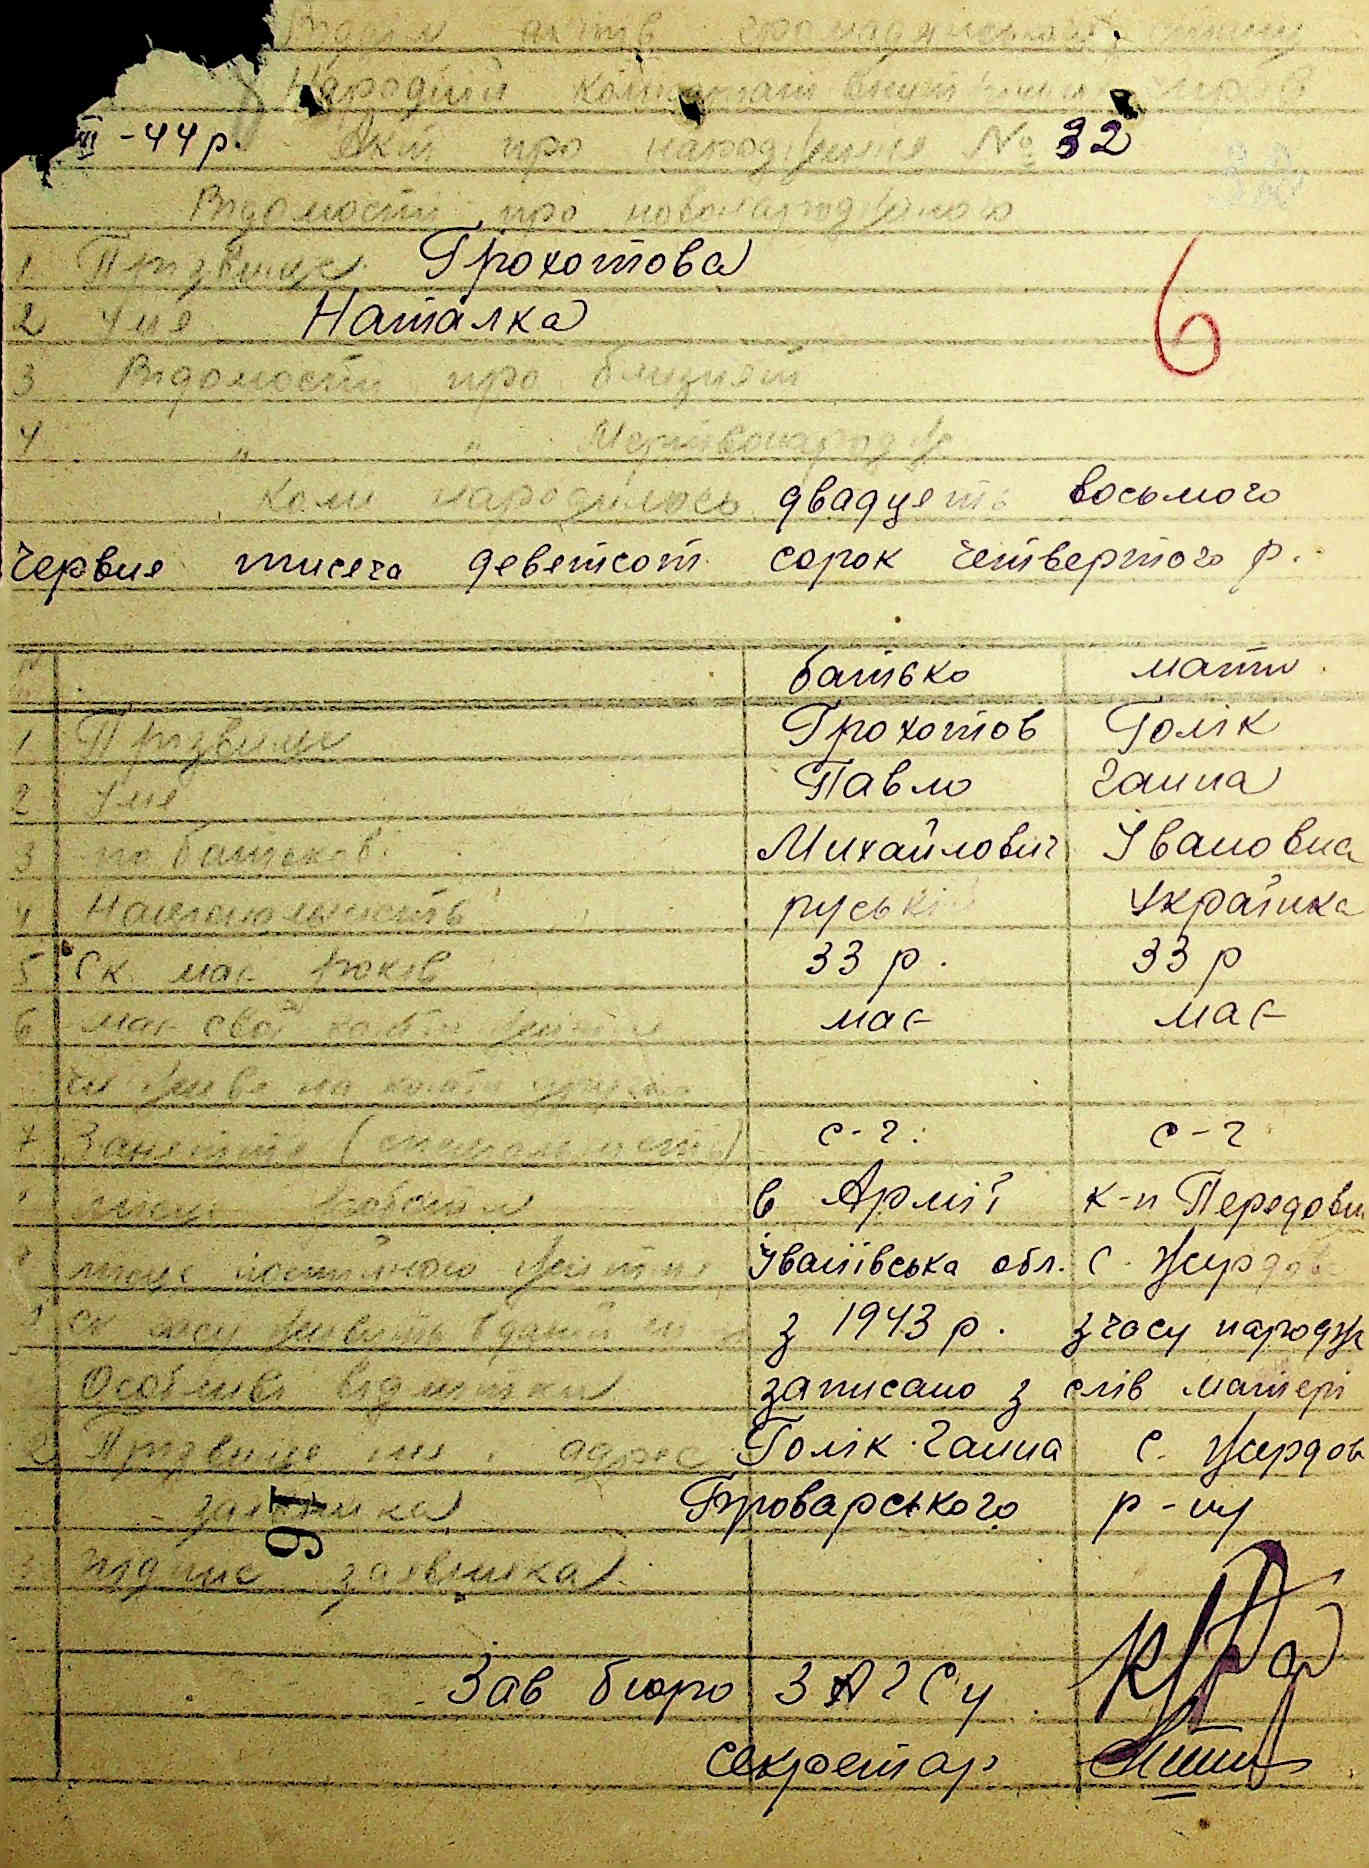 Відділ актів громадянського стану
Народній комісаріат внутрішніх справ
VII -44 р. Акт про народження № 32
Відомості про новонародженого
1 Прізвище Грохотова
2 Имя Наталка
3 Відомості про близнят
4 " " Мертвонародж.
Коли народилось двадцять восьмого
червня тисяча девятсот сорок четвертого р.
батько мати
1 Прізвище ГрохотовГолік
2 Имя Павло Ганна
3 по батькові Михайлович Івановна
4 Національність руській Українка
5 Ск. має років 33 р. 33 р
6 має має
чи живе на кошти
7 Заняття (спеціальність) с-г. с-г
місце роботи в Армії к-п Передови
місце постійного життя Іванівська обл. с. Жердов
ск часу живеть в даній з 1943 р. з часу народж
Особливі відмітки записано з слів матері
2 Прізвище имя і адрес Голік Ганна с. Жердов
заявника Броварського р-ну
3 підпис заявника
16
6
Зав бюро ЗАГСу
секретар